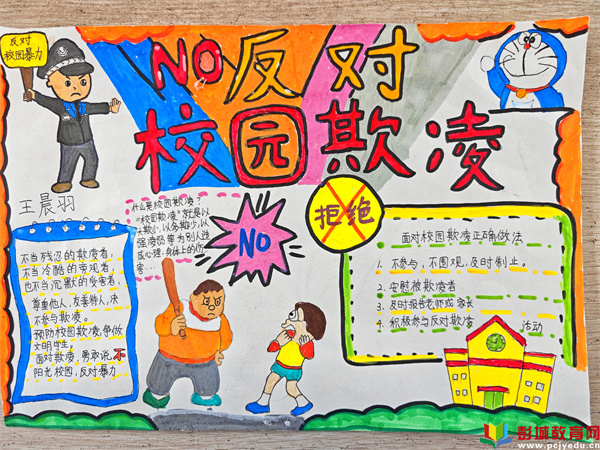 反对
校园暴力
NO反对
校园欺凌
王晨羽
不当残忍的欺凌者,
不当冷酷的旁观者,
也不当沉默的受害者,
尊重他人,友善待人,决
不参与欺凌。
预防校园欺凌,争做
文明学生。
面对欺凌,勇敢说不
阳光校园,反对暴力
什么是校园欺凌?
"校园欺凌"就是以
大欺小,以多欺少,以
强凌弱等为别人造
成心理,身体上的伤
害……
NO
拒绝
面对校园欺凌正确做法
1. 不参与,不围观,及时制止。
2. 安慰被欺凌者
3. 及时报告老师或家长
4. 积极参与反对欺凌 活动
彭城教育网
www.pcjyedu.cn